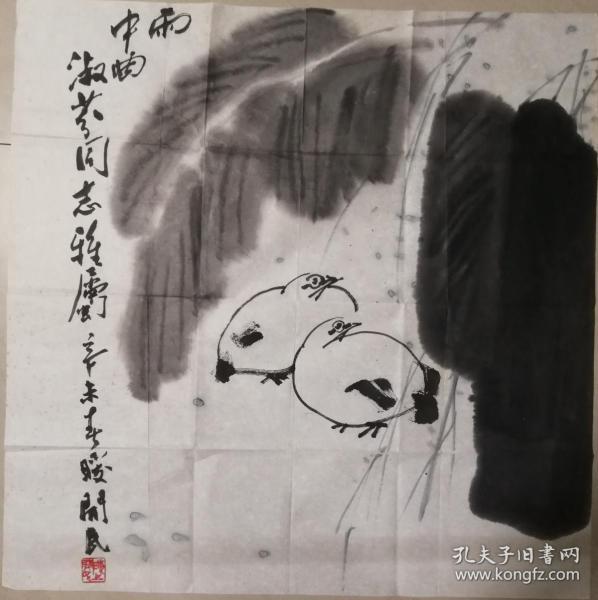 雨
中曲
淑芬同志雅属辛未春暖開民
孔夫子旧书网
www.kongfz.com